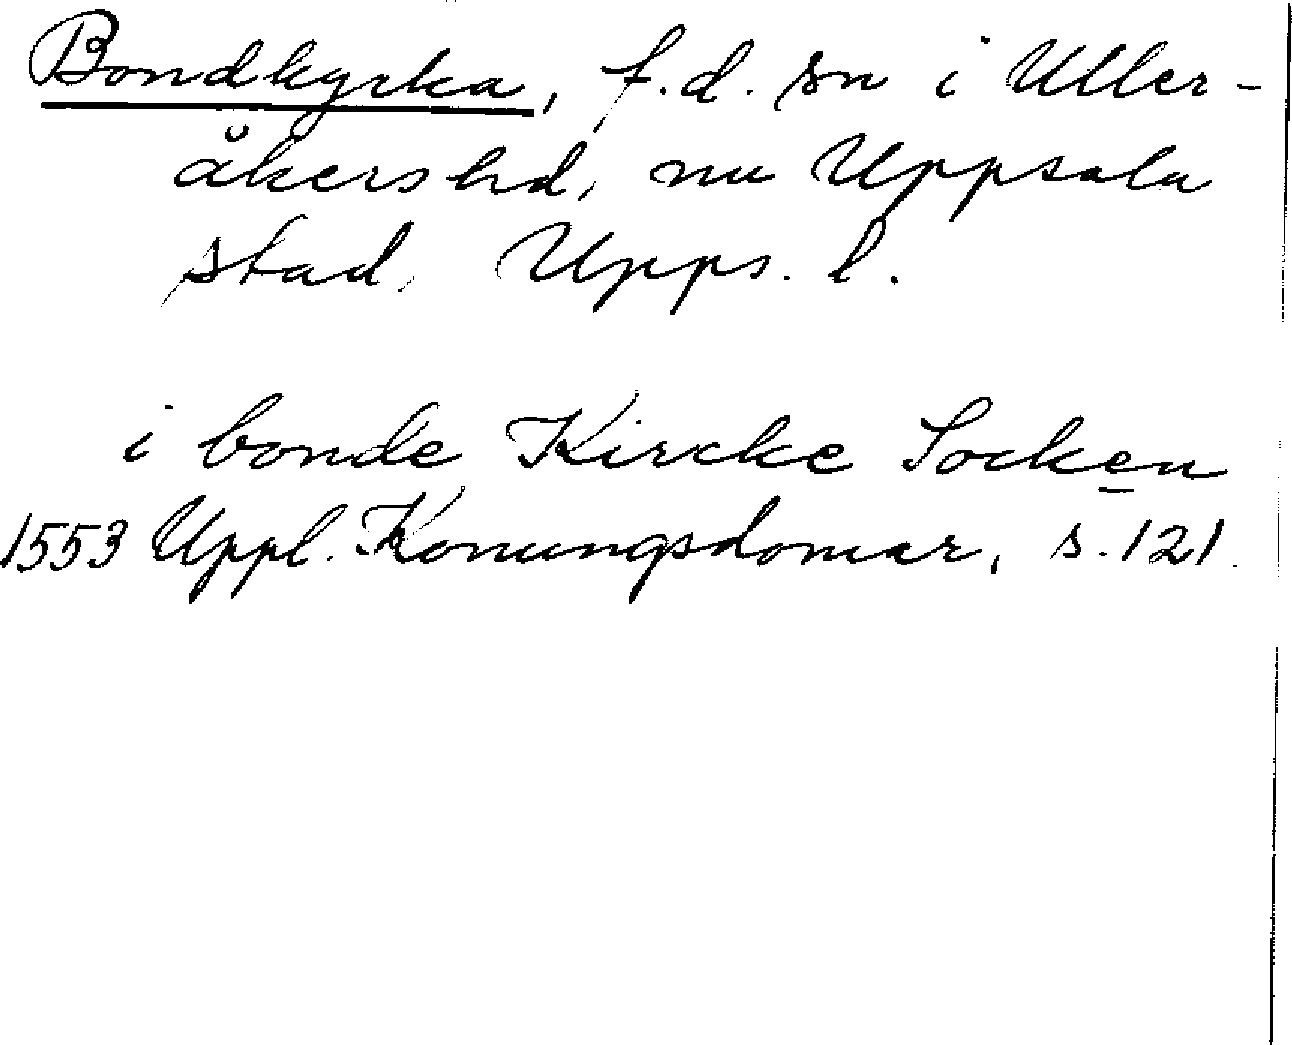 Bondkyrka, f.d. sn i Uller-
åkers hd, nu Uppsala
stad, Upps. l.
i bonde Kircke Socken
1553 Uppl. Konungsdomar, s. 121.